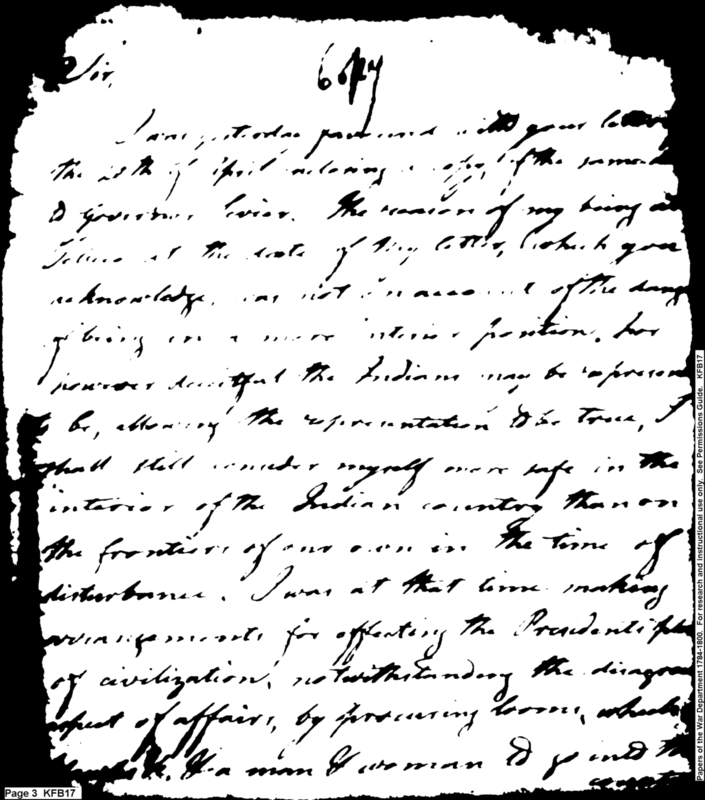 Sir, Copy
I was yesterday favoured with your letter
the 20th of April enclosing a copy of the same
to Governor Sevier. The reason of my being at
Tellico at the date of my letter, which you
acknowledge, was not on account of the dang
of being in a more interior position, for
however deceitful the Indians may be represen
to be, allowing the representation to be true, I
shall still consider myself more safe in the
interior of the Indian country than on
the frontiers of our own in the time of
disturbance. I was at that time making
arrangements for effecting the Presidents pla
of civilization, notwithstanding the disagree
aspect of affairs, by procuring looms, wheels
a man & woman to go into the
Page 3 KFB17
Papers of the War Department 1784-1800. For research and instructional use only. See Permissions Guide. KFB17